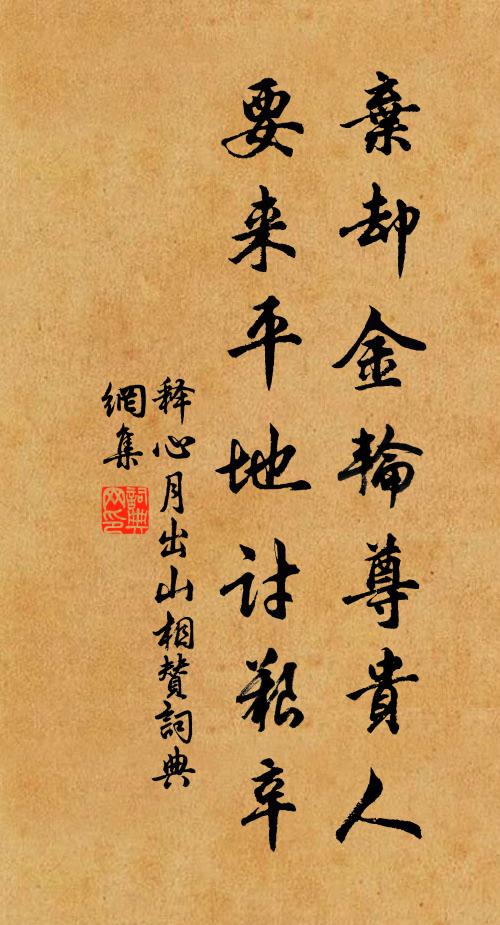 棄却金輪尊貴人
要来平地討艱辛
释心月出山相赞詞典
網集
詞典网印